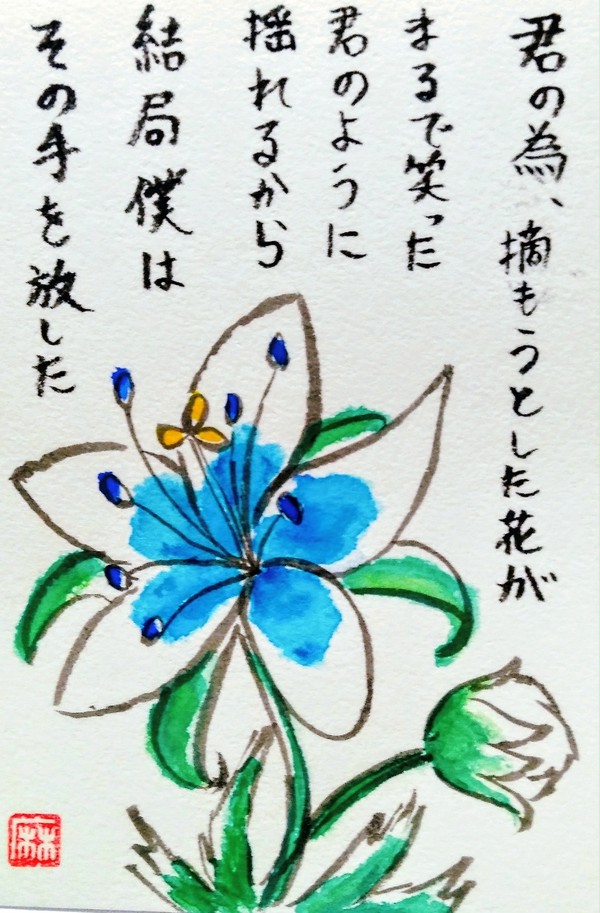 君の為、摘もうとした花が
まるで笑った
君のように
揺れるから
結局僕は
その手を放した
麻